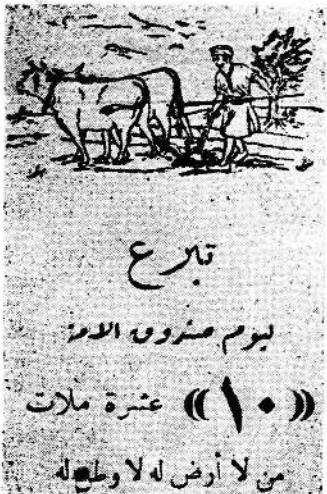 تبرع
ليوم صندوق الامة
(( ١٠ )) عشرة ملات
من لا أرض له لا وطن له